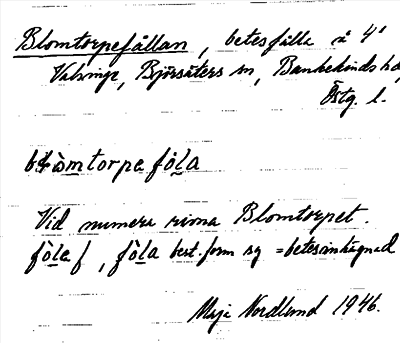 Blomtorpefållan, betesfålla å 4¹
Valsinge, Björsäters sn, Bankekinds hd,
Östg. l.
blòmtorpefòla
Vid numera rivna Blomtorpet.
fòla f, fòla best. form sg = betesinhägnad
Maja Nordlund 1946.